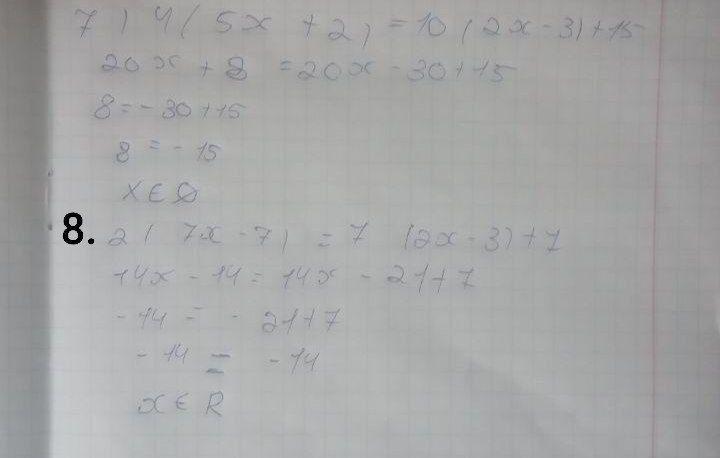 7) 4(5x + 2) = 10(2x - 3) + 15
20x + 8 = 20x - 30 + 15
8 = -30 + 15
8 = -15
x ∈ ∅
8. 2(7x - 7) = 7 (2x - 3) + 7
14x - 14 = 14x - 21 + 7
-14 = -21 + 7
-14 = -14
x ∈ R